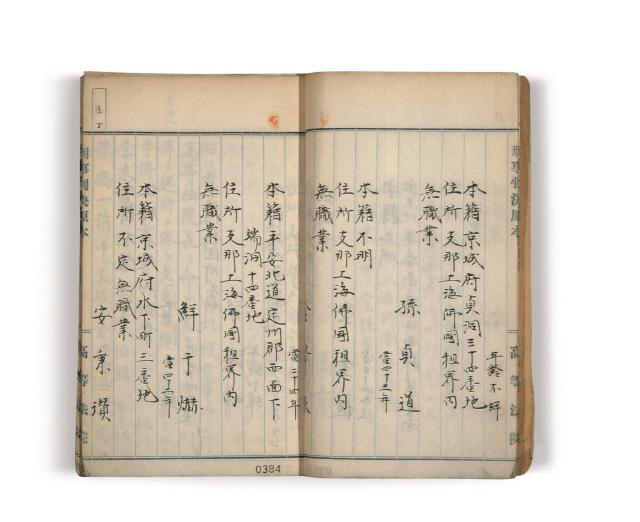 刑事判決原本
高等法院
年齢不詳
本籍京城府貞洞三十四番地
住所支那上海佛國租界内
無職業
孫貞道
本籍不明
住所支那上海佛國租界内
無職業
當三十四年
本籍平安北道定州郡西面下
端洞十四番地
住所支那上海佛國租界内
無職業
鮮于爀
本籍京城府水下町三番地
住所不定無職業
安秉瓚
刑事判決原本
高等法院
0384